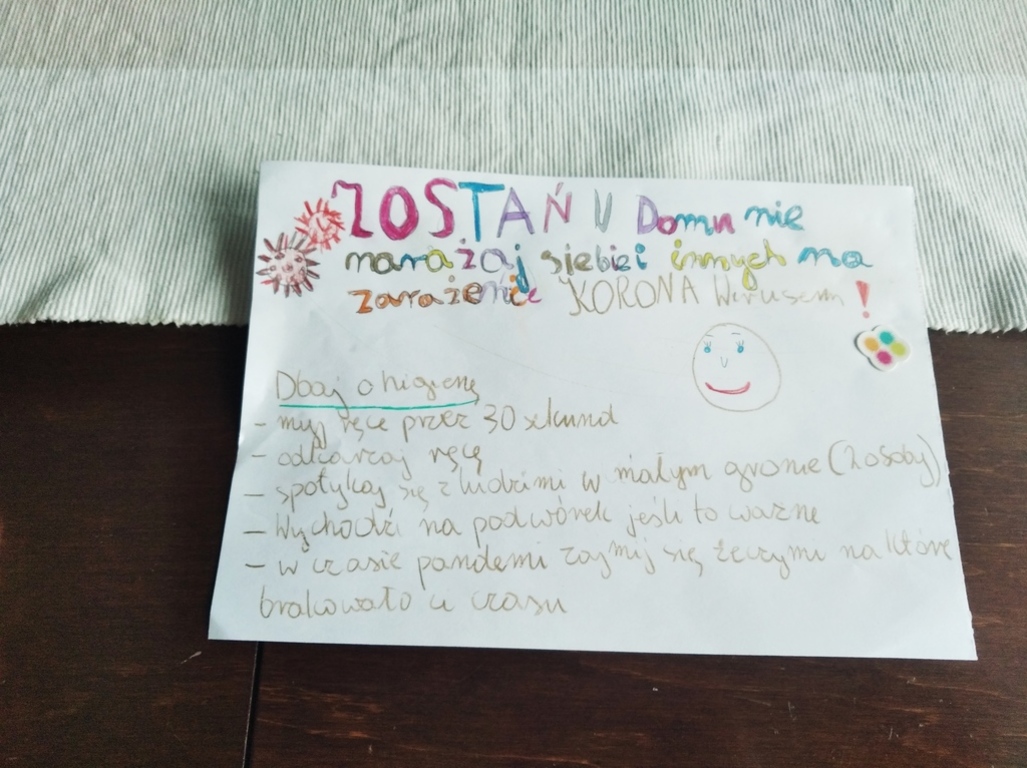 ZOSTAŃ W Domu nie
narażaj siebie i innych na
zarażenie KORONA Wirusem!
Dbaj o higienę
- myj ręce przez 30 sekund
- odkarzaj ręcę
- spotykaj się z ludzimi w małym gronie (2 osoby)
- Wychodź na podwórek jeśli to ważne
- w czasie pandemi zajmij się żeczymi na które
brakowało ci czasu